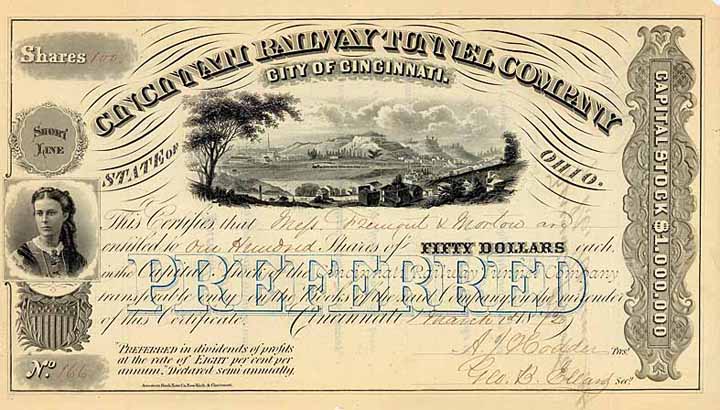 Shares 100
CINCINNATI RAILWAY TUNNEL COMPANY
CITY OF CINCINNATI.
SHORT
LINE
STATE OF OHIO.
CAPITAL STOCK $1,000,000
This Certifies that Mess. Fremont & Morton are
entitled to One Hundred Shares of FIFTY DOLLARS each
in the Capital Stock of the Cincinnati Railway Tunnel Company
PREFERRED
transferable only on the Books of the said Company on the surrender
of this Certificate. Cincinnati March 1872
"PREFERRED in dividends of profits
at the rate of EIGHT per cent per
annum," Declared semi annually.
A. J. Hodder Pres.
Geo. B. Sec.
No. 166
American Bank Note Co. New York & Cincinnati.